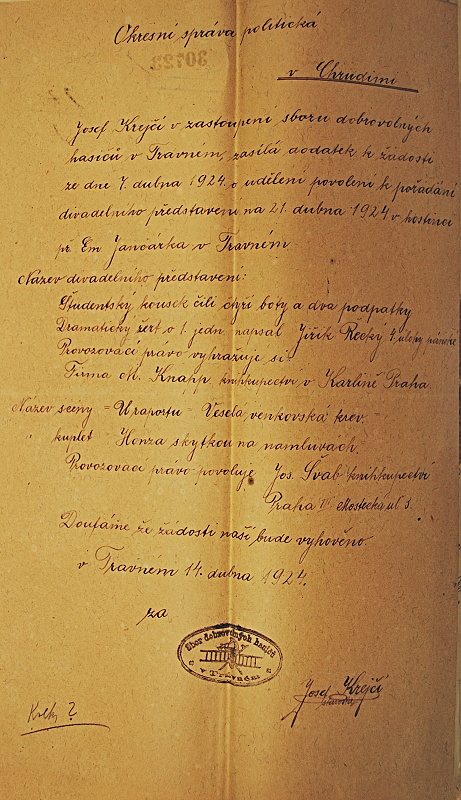 Okresní správa politická
30723
v Chrudimi
Josef Krejčí v zastoupení sboru dobrovolných
hasičů v Travném, zasílá dodatek k žádosti
ze dne 7. dubna 1924 o udělení povolení k pořádání
divadelního představení na 21. dubna 1924 v hostinci
př. Em. Jančárka v Travném.
Název divadelního představení:
Študentský kousek čili čtyři boty a dva podpatky
Dramatický žert o 1. jedn. napsal Jiřík Recký 4 úlohy pánské
Provozovací právo vyhražuje si
Firma M. Knapp knihkupectví v Karlíně Praha.
Název scény = U raportu = Veselá venkovská krev.
" kuplet Honza s kytkou na namluvách.
Provozovací právo povoluje Jos. Šváb knihkupectví
Praha III Mostecká ul 3.
Doufáme že žádosti naší bude vyhověno.
v Travném 14. dubna 1924.
za
Sbor dobrovolných hasičů
v Travném
Josef Krejčí
starosta
Kolky ?